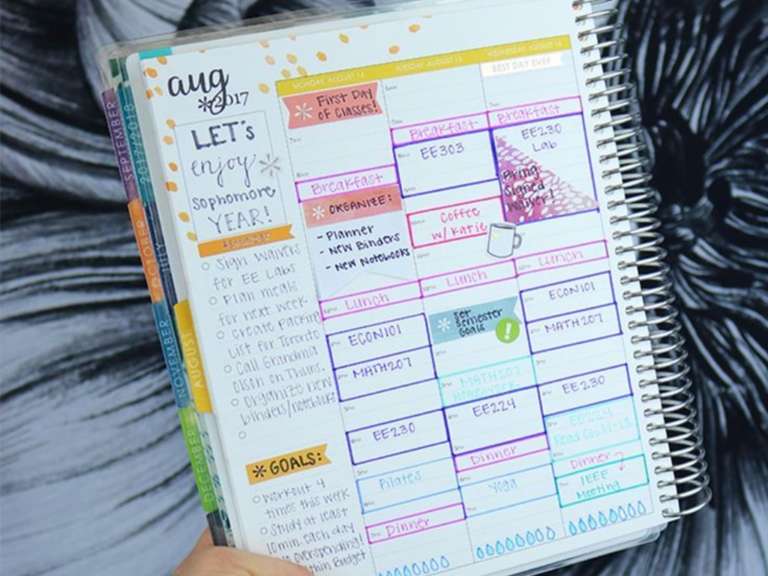 aug
*2017
LET'S
enjoy
sophomore
YEAR!
Sign Waivers
for EE Labs
Plan meals
for next week
Create Packing
List for Toronto
Call Grandma
Olson on Thurs.
Organize new
binders/notebooks
*GOALS:
Workout 4
times this week
Study at least
10 min. each day
overspending!
thin Budget
SEPTEMBER
OCTOBER
NOVEMBER
DECEMBER
2017/2018
JULY
AUGUST
MONDAY, AUGUST 14
First Day
of Classes!
Breakfast
ORGANIZE:
- Planner
- New Binders
- New Notebooks
Lunch
ECON101
MATH207
EE230
Pilates
Dinner
TUESDAY, AUGUST 15
Breakfast
EE303
Coffee
w/ Katie
Lunch
Set
Semester
Goals
!
MATH207
Homework
EE224
Dinner
Yoga
WEDNESDAY, AUGUST 16
BEST DAY EVER
Breakfast
EE230
Lab
Bring
Signed
Waiver!
Lunch
ECON101
MATH207
EE230
EE224
Dinner
IEEE
Meeting